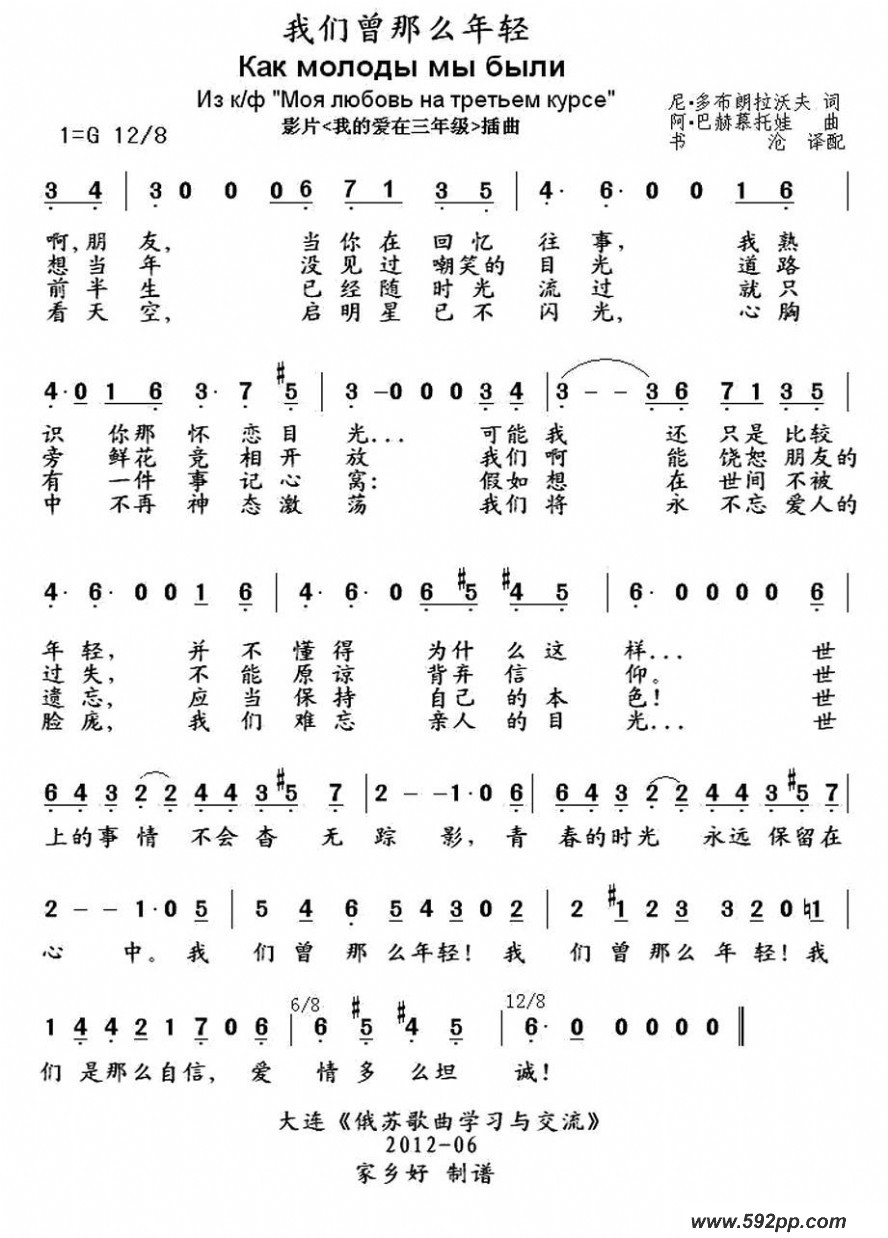 我们曾那么年轻
Как молоды мы были
Из к/ф "Моя любовь на третьем курсе"
影片<我的爱在三年级>插曲
尼·多布朗拉沃夫 词
阿·巴赫慕托娃 曲
书 沧 译配
1=G 12/8
3 4 | 3 0 0 0 6 7 1 3 5 | 4· 6· 0 0 1 6 |
啊,朋 友, 当 你 在 回 忆 往 事, 我 熟
想 当 年 没 见 过 嘲 笑 的 目 光 道 路
前 半 生 已 经 随 时 光 流 过 就 只
看 天 空, 启 明 星 已 不 闪 光, 心 胸
4· 0 1 6 3· 7 #5 | 3 - 0 0 0 3 4 | 3 - - 3 6 7 1 3 5 |
识 你 那 怀 恋 目 光... 可 能 我 还 只 是 比 较
旁 鲜 花 竞 相 开 放 我 们 啊 能 饶 恕 朋 友 的
有 一 件 事 记 心 窝: 假 如 想 在 世 间 不 被
中 不 再 神 态 激 荡 我 们 将 永 不 忘 爱 人 的
4· 6· 0 0 1 6 | 4· 6· 0 6 #5 #4 5 | 6· 0 0 0 0 6 |
年 轻, 并 不 懂 得 为 什 么 这 样... 世
过 失, 不 能 原 谅 背 弃 信 仰。 世
遗 忘, 应 当 保 持 自 己 的 本 色! 世
脸 庞, 我 们 难 忘 亲 人 的 目 光... 世
6 4 3 2 2 4 4 3 #5 7 | 2 - - 1· 0 6 | 6 4 3 2 2 4 4 3 #5 7 |
上 的 事 情 不 会 杳 无 踪 影, 青 春 的 时 光 永 远 保 留 在
2 - - 1· 0 5 | 5 4 6 5 4 3 0 2 | 2 #1 2 3 3 2 0 ♮1 |
心 中。 我 们 曾 那 么 年 轻! 我 们 曾 那 么 年 轻! 我
1 4 4 2 1 7 0 6 | 6/8 6 #5 #4 5 | 12/8 6· 0 0 0 0 0 ‖
们 是 那 么 自 信, 爱 情 多 么 坦 诚!
大连《俄苏歌曲学习与交流》
2012-06
家乡好 制谱
www.592pp.com